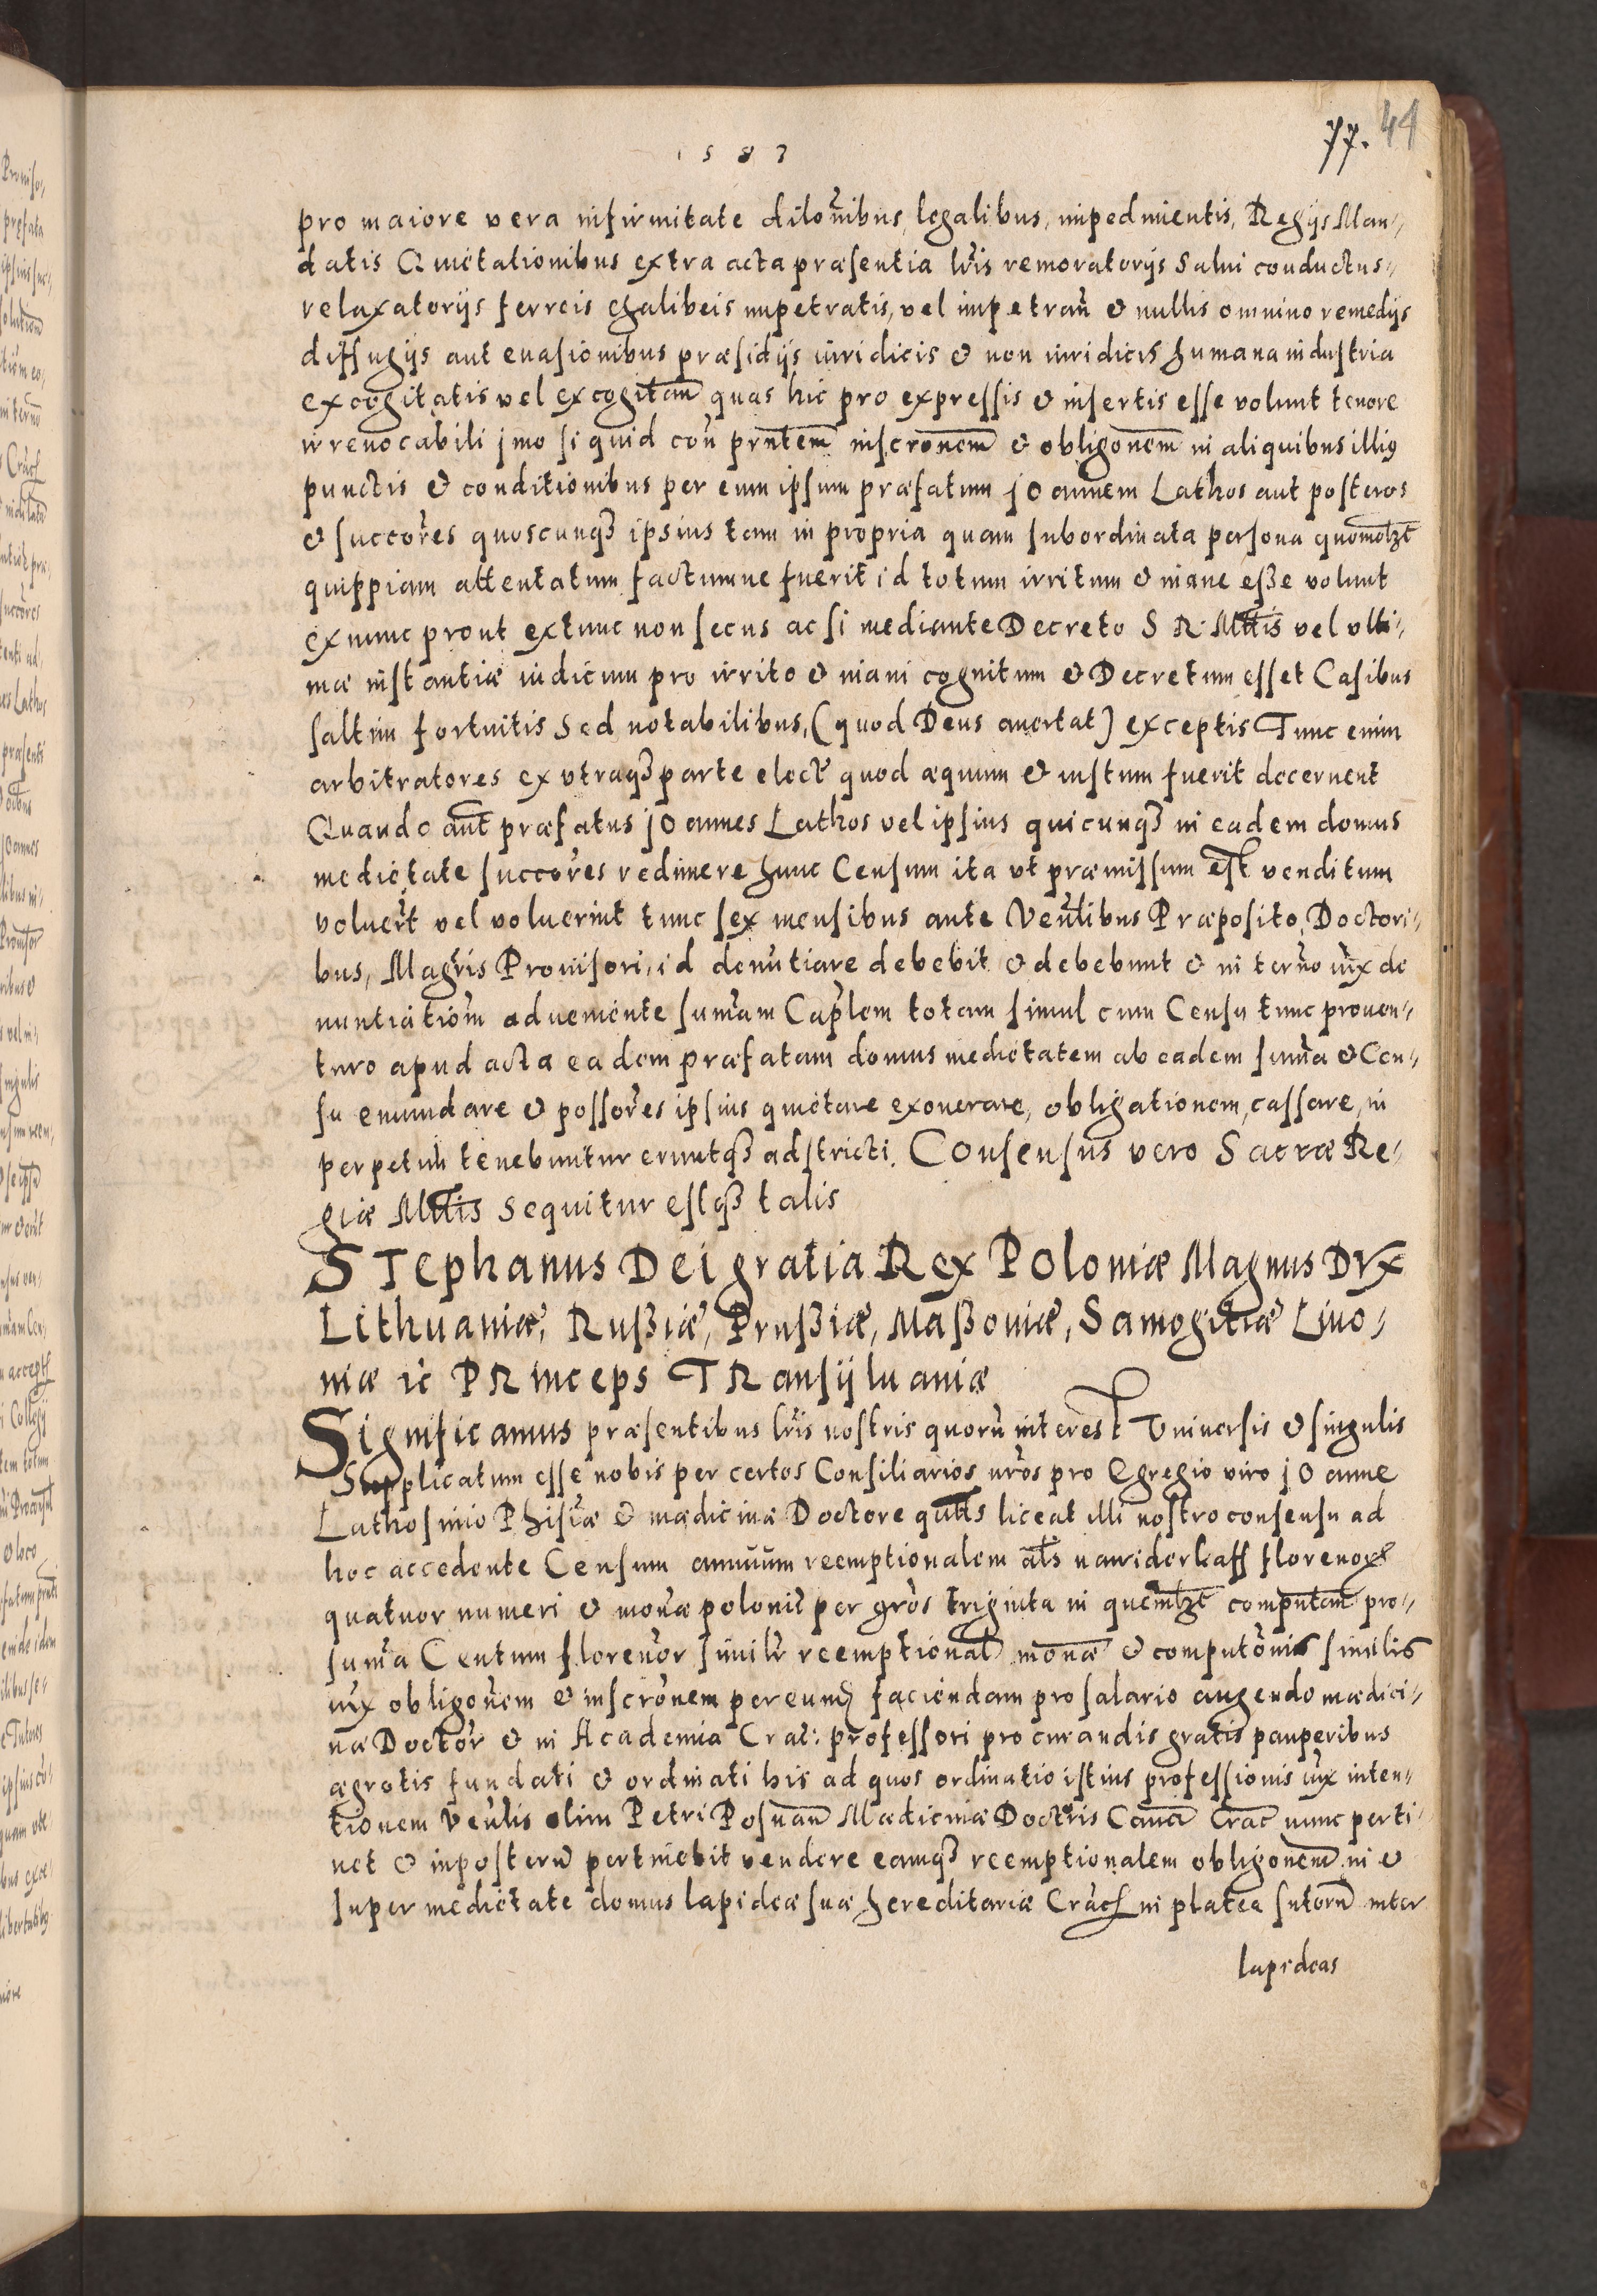 1583
77. 44
pro maiore vera infirmitate dilo͠nibus, legalibus, impedimentis, Regijs Man-
datis Quietationibus extra acta præsentia lr̃is remoratorijs Salui conductus-
relaxatorijs ferreis galibeis impetratis, vel impetran̄ & nullis omnino remedijs
diffugijs aut euasionibus præsidijs iuridicis & non iuridicis humana industria
excogitatis vel excogitan̄ quas hic pro expressis & insertis esse volunt tenore
irreuocabili jmo si quid con̄ prn̄tem inscro͠nem & obligo͠nem in aliquibus illius
punctis & conditionibus per eum ipsum præfatum jOannem Lathos aut posteros
& succo͠res quoscunq₃ ipsius tam in propria quam subordinata persona quomol₃t
quippiam attentatum factumue fuerit id totum irritum & inane eße volunt
ex nunc prout extunc non secus ac si mediante Decreto S R Mttis vel vlti-
mæ instantiæ iudicum pro irrito & inani cognitum & Decretum esset Casibus
saltim fortuitis Sed notabilibus, (quod Deus auertat) exceptis Tunc enim
arbitratores ex vtraq₃ parte elect̃ quod æquum & iustum fuerit decernent
Quando aūt præfatus jOannes Lathos vel ipsius quicunq₃ in eadem domus
medietate succo͠res redimere hunc Censum ita vt præmissum est venditum
voluer̃t vel voluerint tunc sex mensibus ante Ven̄libus Præposito, Doctori-
bus, Magr̃is Prouisori, id denu͠tiare debebit & debebunt & in ter͠no iux de
nuntiatio͠m adueniente sum͠am Cap͠lem totam simul cum Censu tunc prouen-
turo apud acta eadem præfatam domus medietatem ab eadem sum͠a & Cen-
su emundare & posso͠res ipsius quietare exonerare, obligationem, cassare, in
perpetuu͠ tenebuntur eruntq₃ adstricti. COnsensus vero Sacræ Re-
giæ Mttis sequitur estq₃ talis
STephanus Dei gratia Rex POloniæ Magnus DVX
Lithuaniæ, Rußiæ, Prußiæ, Maßouiæ, Samogitiæ Liuo-
niæ ic̃ PRinceps TRansijluaniæ
Significamus præsentibus lr̃is nostris quoru͠ interest Vniuersis & singulis
Supplicatum esse nobis per certos Consiliarios nr͠os pro Egregio viro jOanne
Lathosinio Phisicæ & mædicinæ Doctore qutt̃s liceat illi nostro consensu ad
hoc accedente Censum annuum reemptionalem al̃s nawiderkaff florenoꝝ
quatuor numeri & mo͠næ polonic͠ per gro͠s triginta in quem̃l₃t computan̄t pro-
sum͠a Centum floreno͠r simil͠r reemptional̃ mo͠næ & computo͠nis similis
iux obligo͠nem & inscro͠nem per eunḍ faciendam pro salario augendo mædici-
næ Docto͠r & in Academia Crac͠: professori pro curandis gratis pauperibus
ægrotis fundati & ordinati his ad quos ordinatio istius professionis iux inten-
tionem Ven͠lis olim Petri Posnan̄ Mædicinæ Doctoris Can͠ci Crac̃ nunc perti-
net & inposteru͠ pertinebit vendere eamq₃ reemptionalem obligo͠nem in &
super medietate domus lapideæ suæ hereditariæ Crac̃ in platea sutoru͠ inter
lapideas